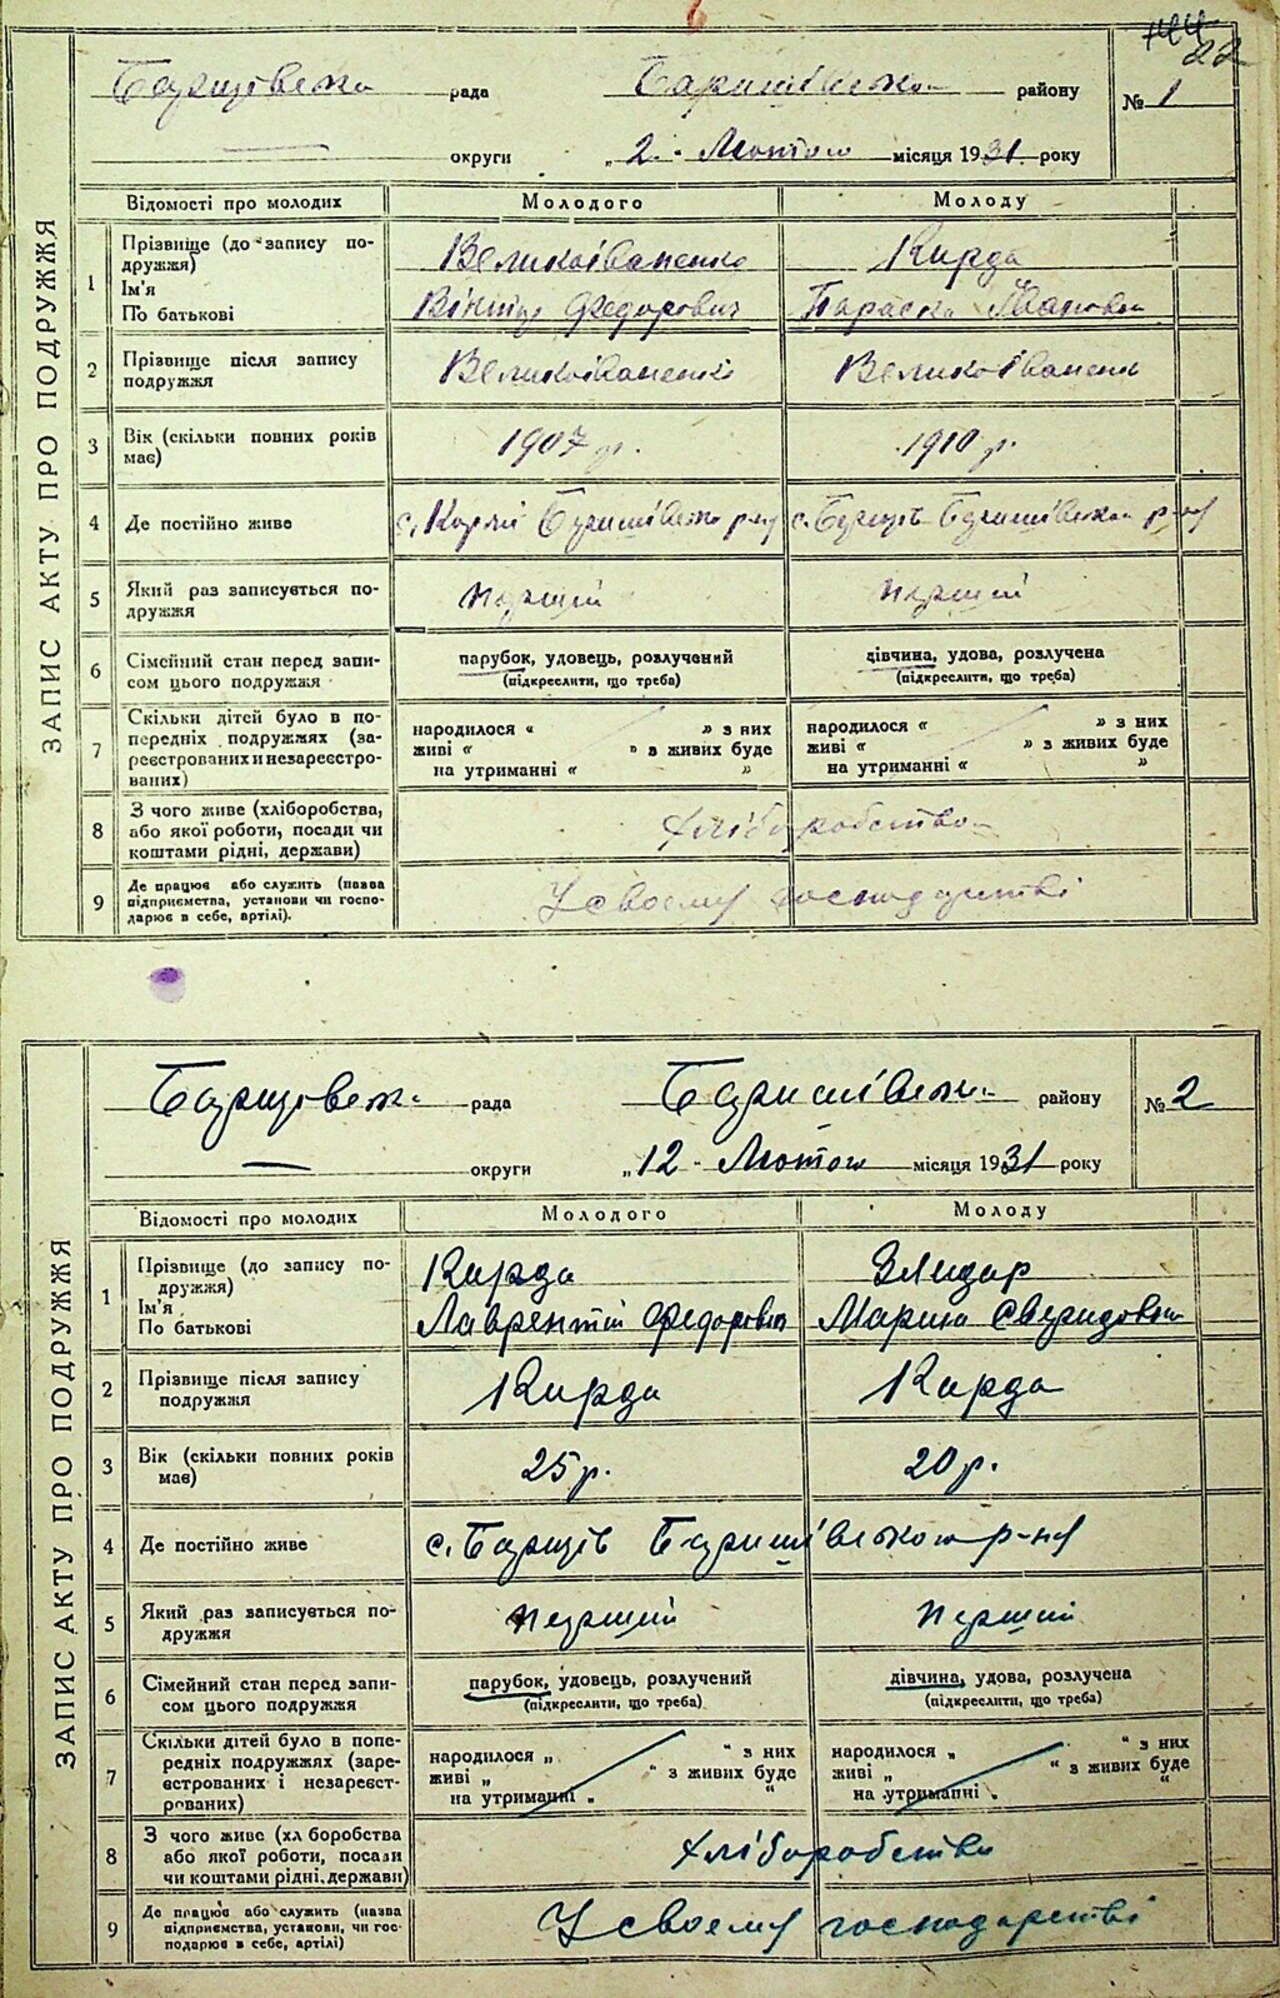 22
Борщівська рада Баришівського району № 1
округи „2" Лютого місяця 1931 року
ЗАПИС АКТУ ПРО ПОДРУЖЖЯ
Відомості про молодих Молодого Молоду
1 Прізвище (до запису по-
дружжя) Великоіваненко Кирда
Ім'я
По батькові Федорович Параска Івановна
2 Прізвище після запису
подружжя Великоіваненко Великоіваненко
3 Вік (скільки повних років
має) 1907 р. 1910 р.
4 Де постійно живе с. Баришівського р-ну с. Борщів Баришівського р-ну
5 Який раз записується по-
дружжя перший перший
6 Сімейний стан перед запи-
сом цього подружжя
парубок, удовець, розлучений
(підкреслити, що треба)
дівчина, удова, розлучена
(підкреслити, що треба)
7 Скільки дітей було в по-
передніх подружжях (за-
реєстрованих и незареєстро-
ваних)
народилося « » з них
живі « » з живих буде
на утриманні « »
народилося « » з них
живі « » з живих буде
на утриманні « »
8 З чого живе (хліборобства,
або якої роботи, посади чи
коштами рідні, держави) хліборобство
9 Де працює або служить (назва
підприємства, установи чи госпо-
дарює в себе, артілі). У своєму господарстві
Борщівська рада Баришівського району № 2
округи „12" Лютого місяця 1931 року
ЗАПИС АКТУ ПРО ПОДРУЖЖЯ
Відомості про молодих Молодого Молоду
1 Прізвище (до запису по-
дружжя) Кирда Злидар
Ім'я
По батькові Лаврентій Федорович Марина Свиридовна
2 Прізвище після запису
подружжя Кирда Кирда
3 Вік (скільки повних років
має) 25 р. 20 р.
4 Де постійно живе с. Борщів Баришівського р-ну
5 Який раз записується по-
дружжя перший перший
6 Сімейний стан перед запи-
сом цього подружжя
парубок, удовець, розлучений
(підкреслити, що треба)
дівчина, удова, розлучена
(підкреслити, що треба)
7 Скільки дітей було в попе-
редніх подружжях (заре-
єстрованих і незареєст-
рованих)
народилося „ " з них
живі „ " з живих буде
на утриманні „ "
народилося „ " з них
живі „ " з живих буде
на утриманні „ "
8 З чого живе (хл боробства
або якої роботи, посади
чи коштами рідні, держави) хліборобства
9 Де працює або служить (назва
підприємства, установи, чи гос-
подарює в себе, артілі) У своєму господарстві